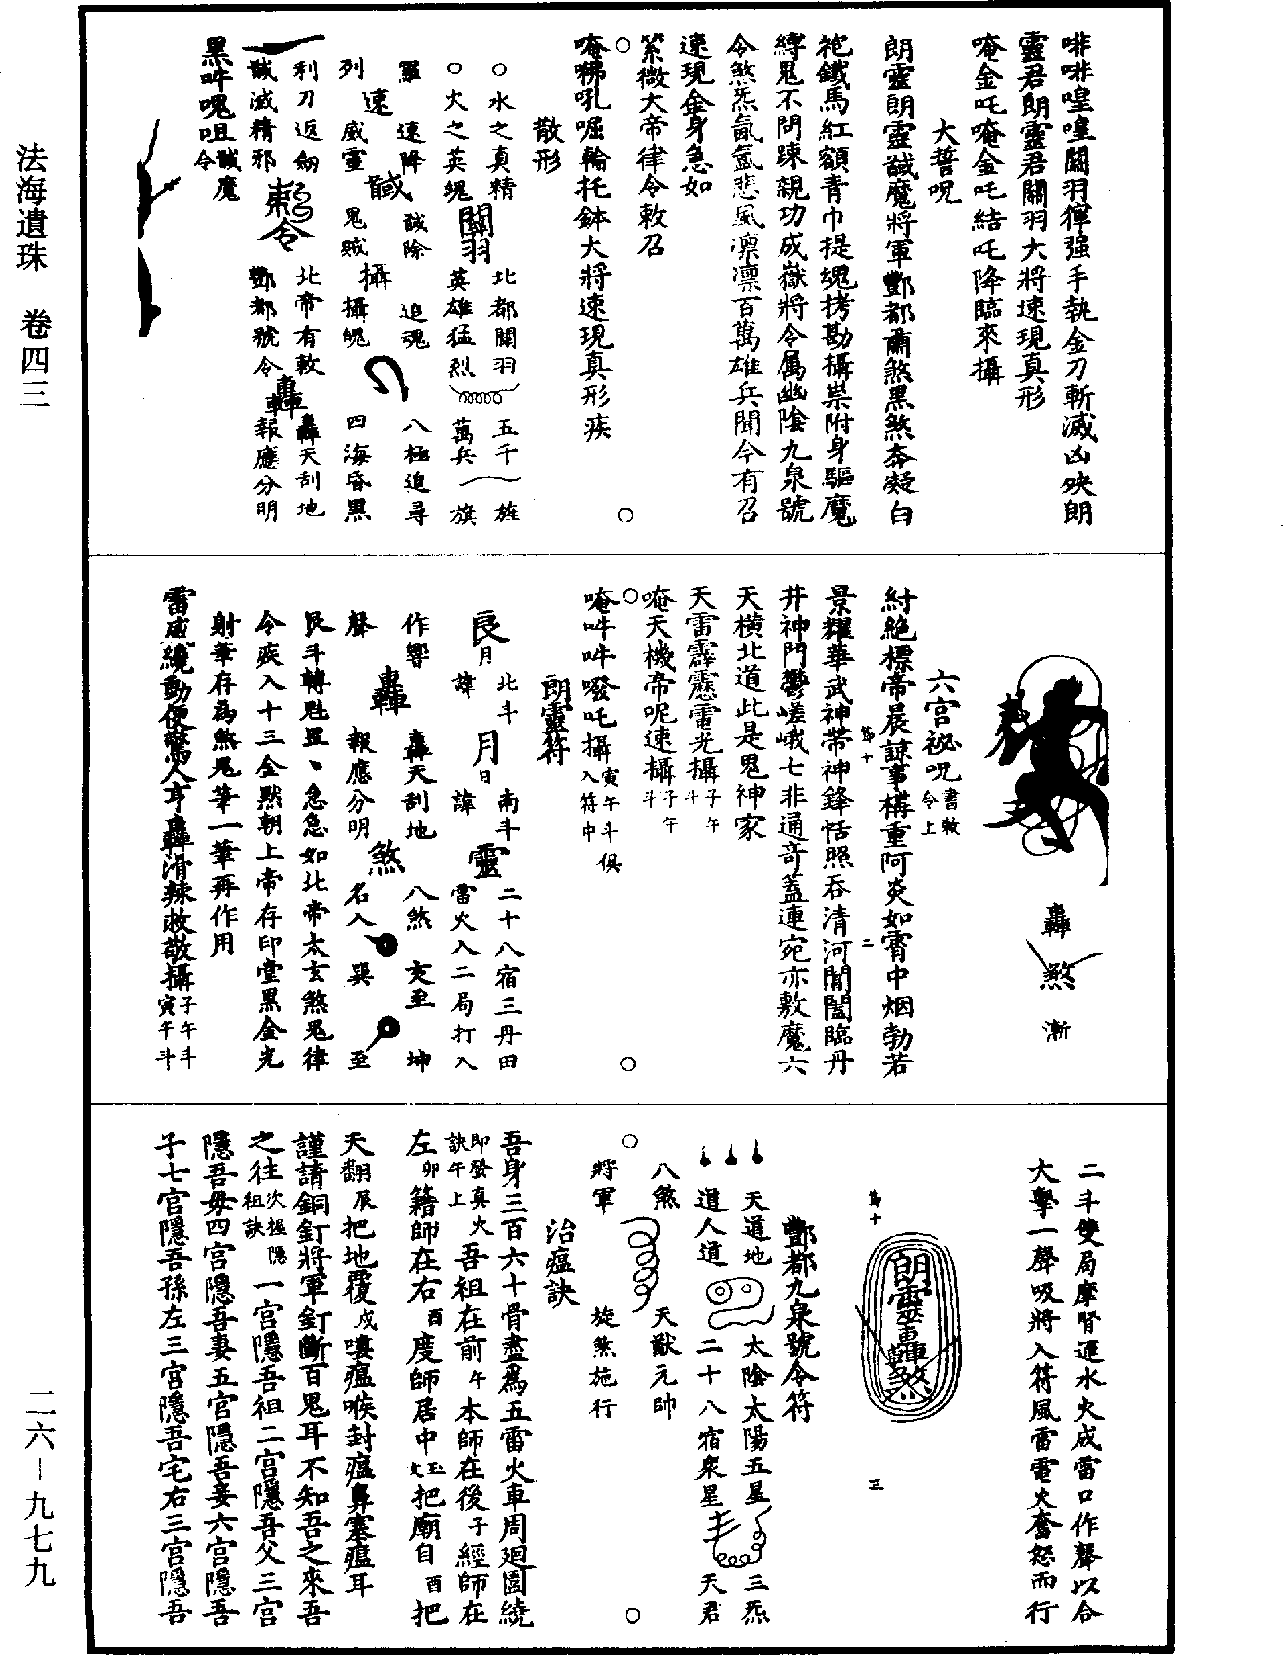 法海遺珠 卷四三
二六-九七九
啡啡喤喤關羽獋強手執金刀斬滅凶殃朗
靈君朗靈君關羽大將速現真形
唵金吒唵金吒結吒降臨來攝
大誓呪
朗靈朗靈馘魔將軍酆都肅煞黑煞奔凝白
袍鐵馬紅額青巾提魂拷勘攝祟附身驅魔
縛鬼不問踈親功成嶽將令属幽陰九泉號
令煞炁氤氳悲風凛凛百萬雄兵聞今有召
速現金身急如
紫微大帝律令敕召
唵㘄吼啒輪托鉢大將速現真形疾
散形
水之真精 北都關羽 五千 旌
火之英魂 關羽 英雄猛烈 萬兵 旗
速降 馘除 追魂 八極追尋
列 威靈 速 馘 鬼賊 攝 攝魄 四海昏黑
利刀返劒 北帝有敕 轟天刮地
馘滅精邪 敕令 酆都號令 轟 報應分明
黑吽嘰咀 馘魔令
轟 煞 漸
六宫祕呪 書敕令上
紂絶標帝晨諒事構重阿炎如霄中烟勃若
景耀華武神帶神鋒恬照吞清河開闔臨丹
井神門鬱嵯峨七非通奇蓋連宛亦敷魔六
天横北道此是鬼神家
天雷霹靂電光攝 子午斗
唵天機帝呢速攝 子午斗
唵吽吽嚩吒攝 寅午斗俱入符中
朗靈符
良 月 北斗 諱 月 日 南斗 諱 靈 二十八宿三丹田 雷火入二局打入
作響 轟天刮地 八煞 亥至 坤
聲 轟 報應分明 煞 名入 巽 至
艮斗轉魁罡、急急如北帝太玄煞鬼律
令疾入十三金㸃朝上帝存印堂黑金光
射筆存為煞鬼筆一筆再作用
雷威纔動便驚人亨轟滑辣敕敬攝 子午斗寅午斗
二斗雙局摩腎運水火成雷口作聲以合
大擊一聲吸將入符風雷電火奮怒而行
朗靈轟煞
酆都九泉號令符
天道地 太陰太陽五星 三炁
道人道 二十八宿衆星 天君
八煞 天猷元帥
將軍 旋煞施行
治瘟訣
吾身三百六十骨盡為五雷火車周廻圍繞
即發真火訣午上 吾祖在前午本師在後子經師在
左卯籍師在右酉度師居中玉文把廟自酉把
天翻辰把地覆戌嘍瘟喉封瘟鼻塞瘟耳
謹請銅釘將軍釘斷百鬼耳不知吾之來吾
之往次握隱祖訣一宫隱吾祖二宫隱吾父三宫
隱吾毋四宫隱吾妻五宫隱吾妾六宫隱吾
子七宫隱吾孫左三宫隱吾宅右三宫隱吾